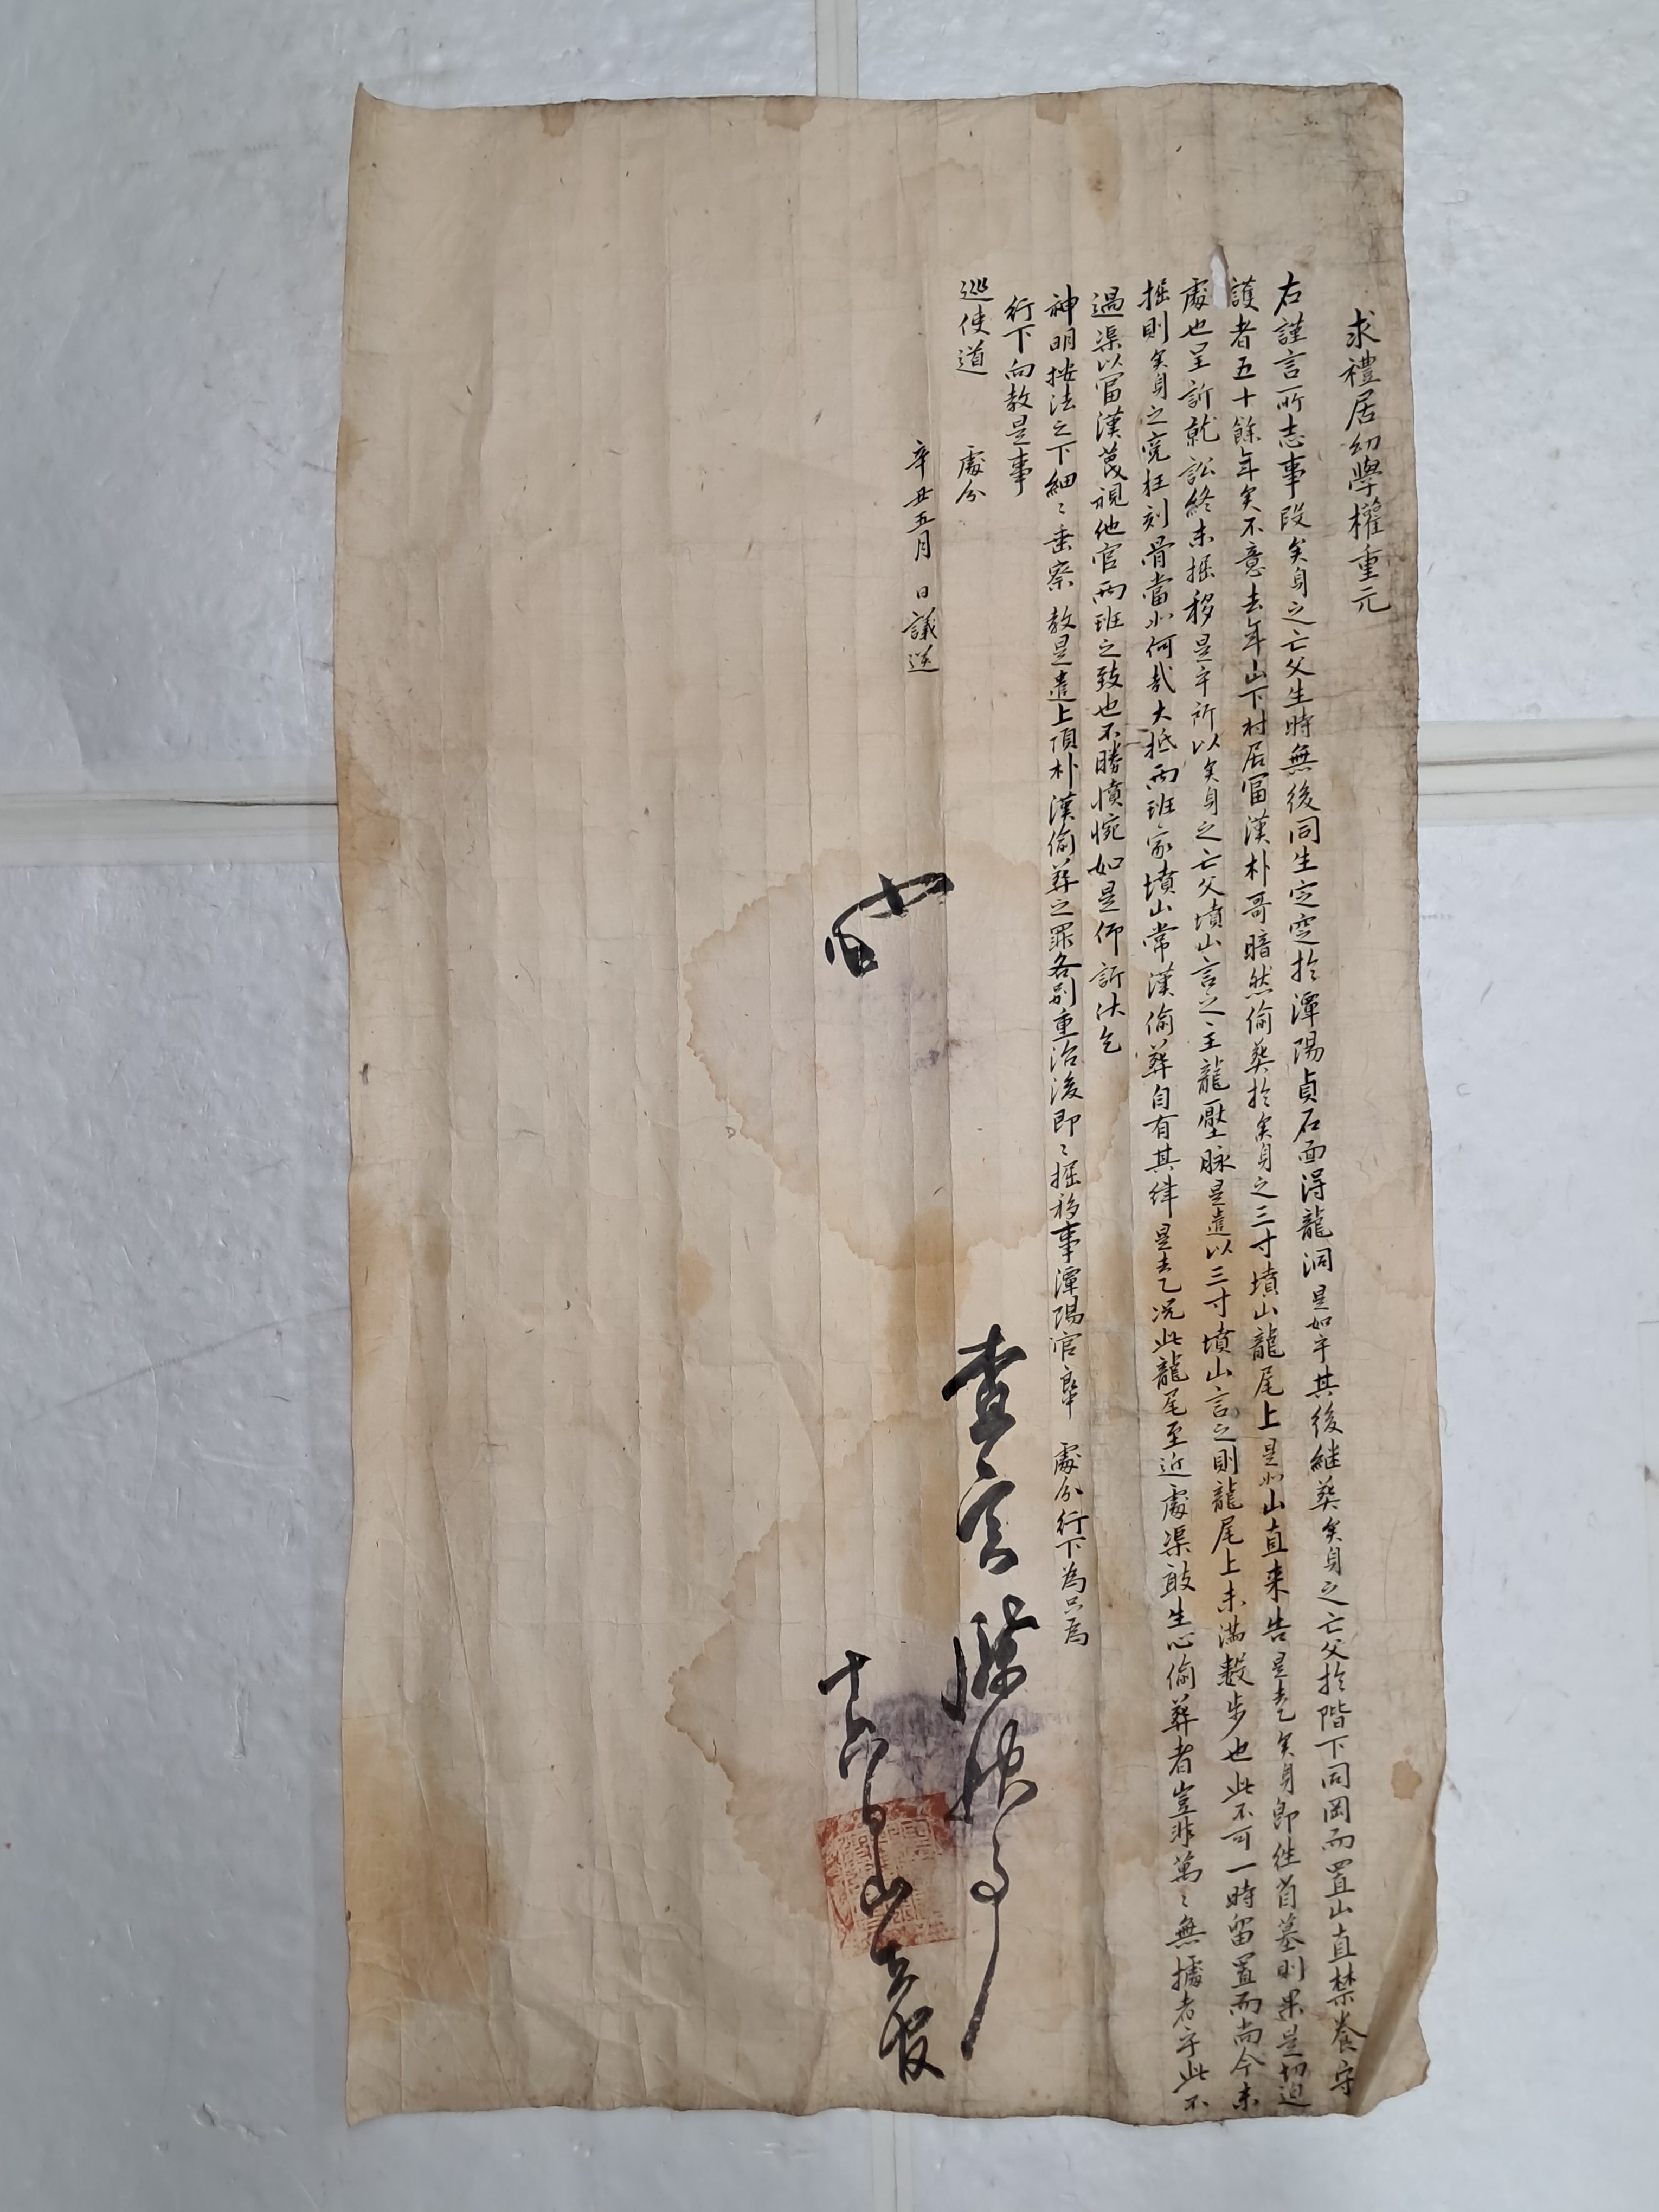 求禮居幼學權重元
右謹言所志事段矣身之亡父生時無後同生定窆於潭陽貞石面淂龍洞是如乎其後継葬矣身之亡父於階下同岡而置山直禁養守
護者五十餘年矣不意去年山下村居富漢朴哥暗然偷葬於矣身之三寸墳山龍尾上是如山直来告是去乙矣身即徃省墓則果是切迫
處也呈訴就訟終未掘移是乎所以矣身之亡父墳山言之主龍壓脉是遣以三寸墳山言之則龍尾上未滿數步也此不可一時留置而尚今未
掘則矣身之寃枉刻骨當如何哉大抵両班家墳山常漢偷葬自有其律是去乙况此龍尾至近處渠敢生心偷葬者豈非萬〻無據者乎此不
過渠以富漢蔑視他官両班之致也不勝憤惋如是仰訴伏乞
神明按法之下細〻垂察教是遣上項朴漢偷葬之罪各別重治後即〻掘移事潭陽官舉 處分行下為只為
行下向教是事
巡使道 處分
辛丑五月 日議送
查官
十六日